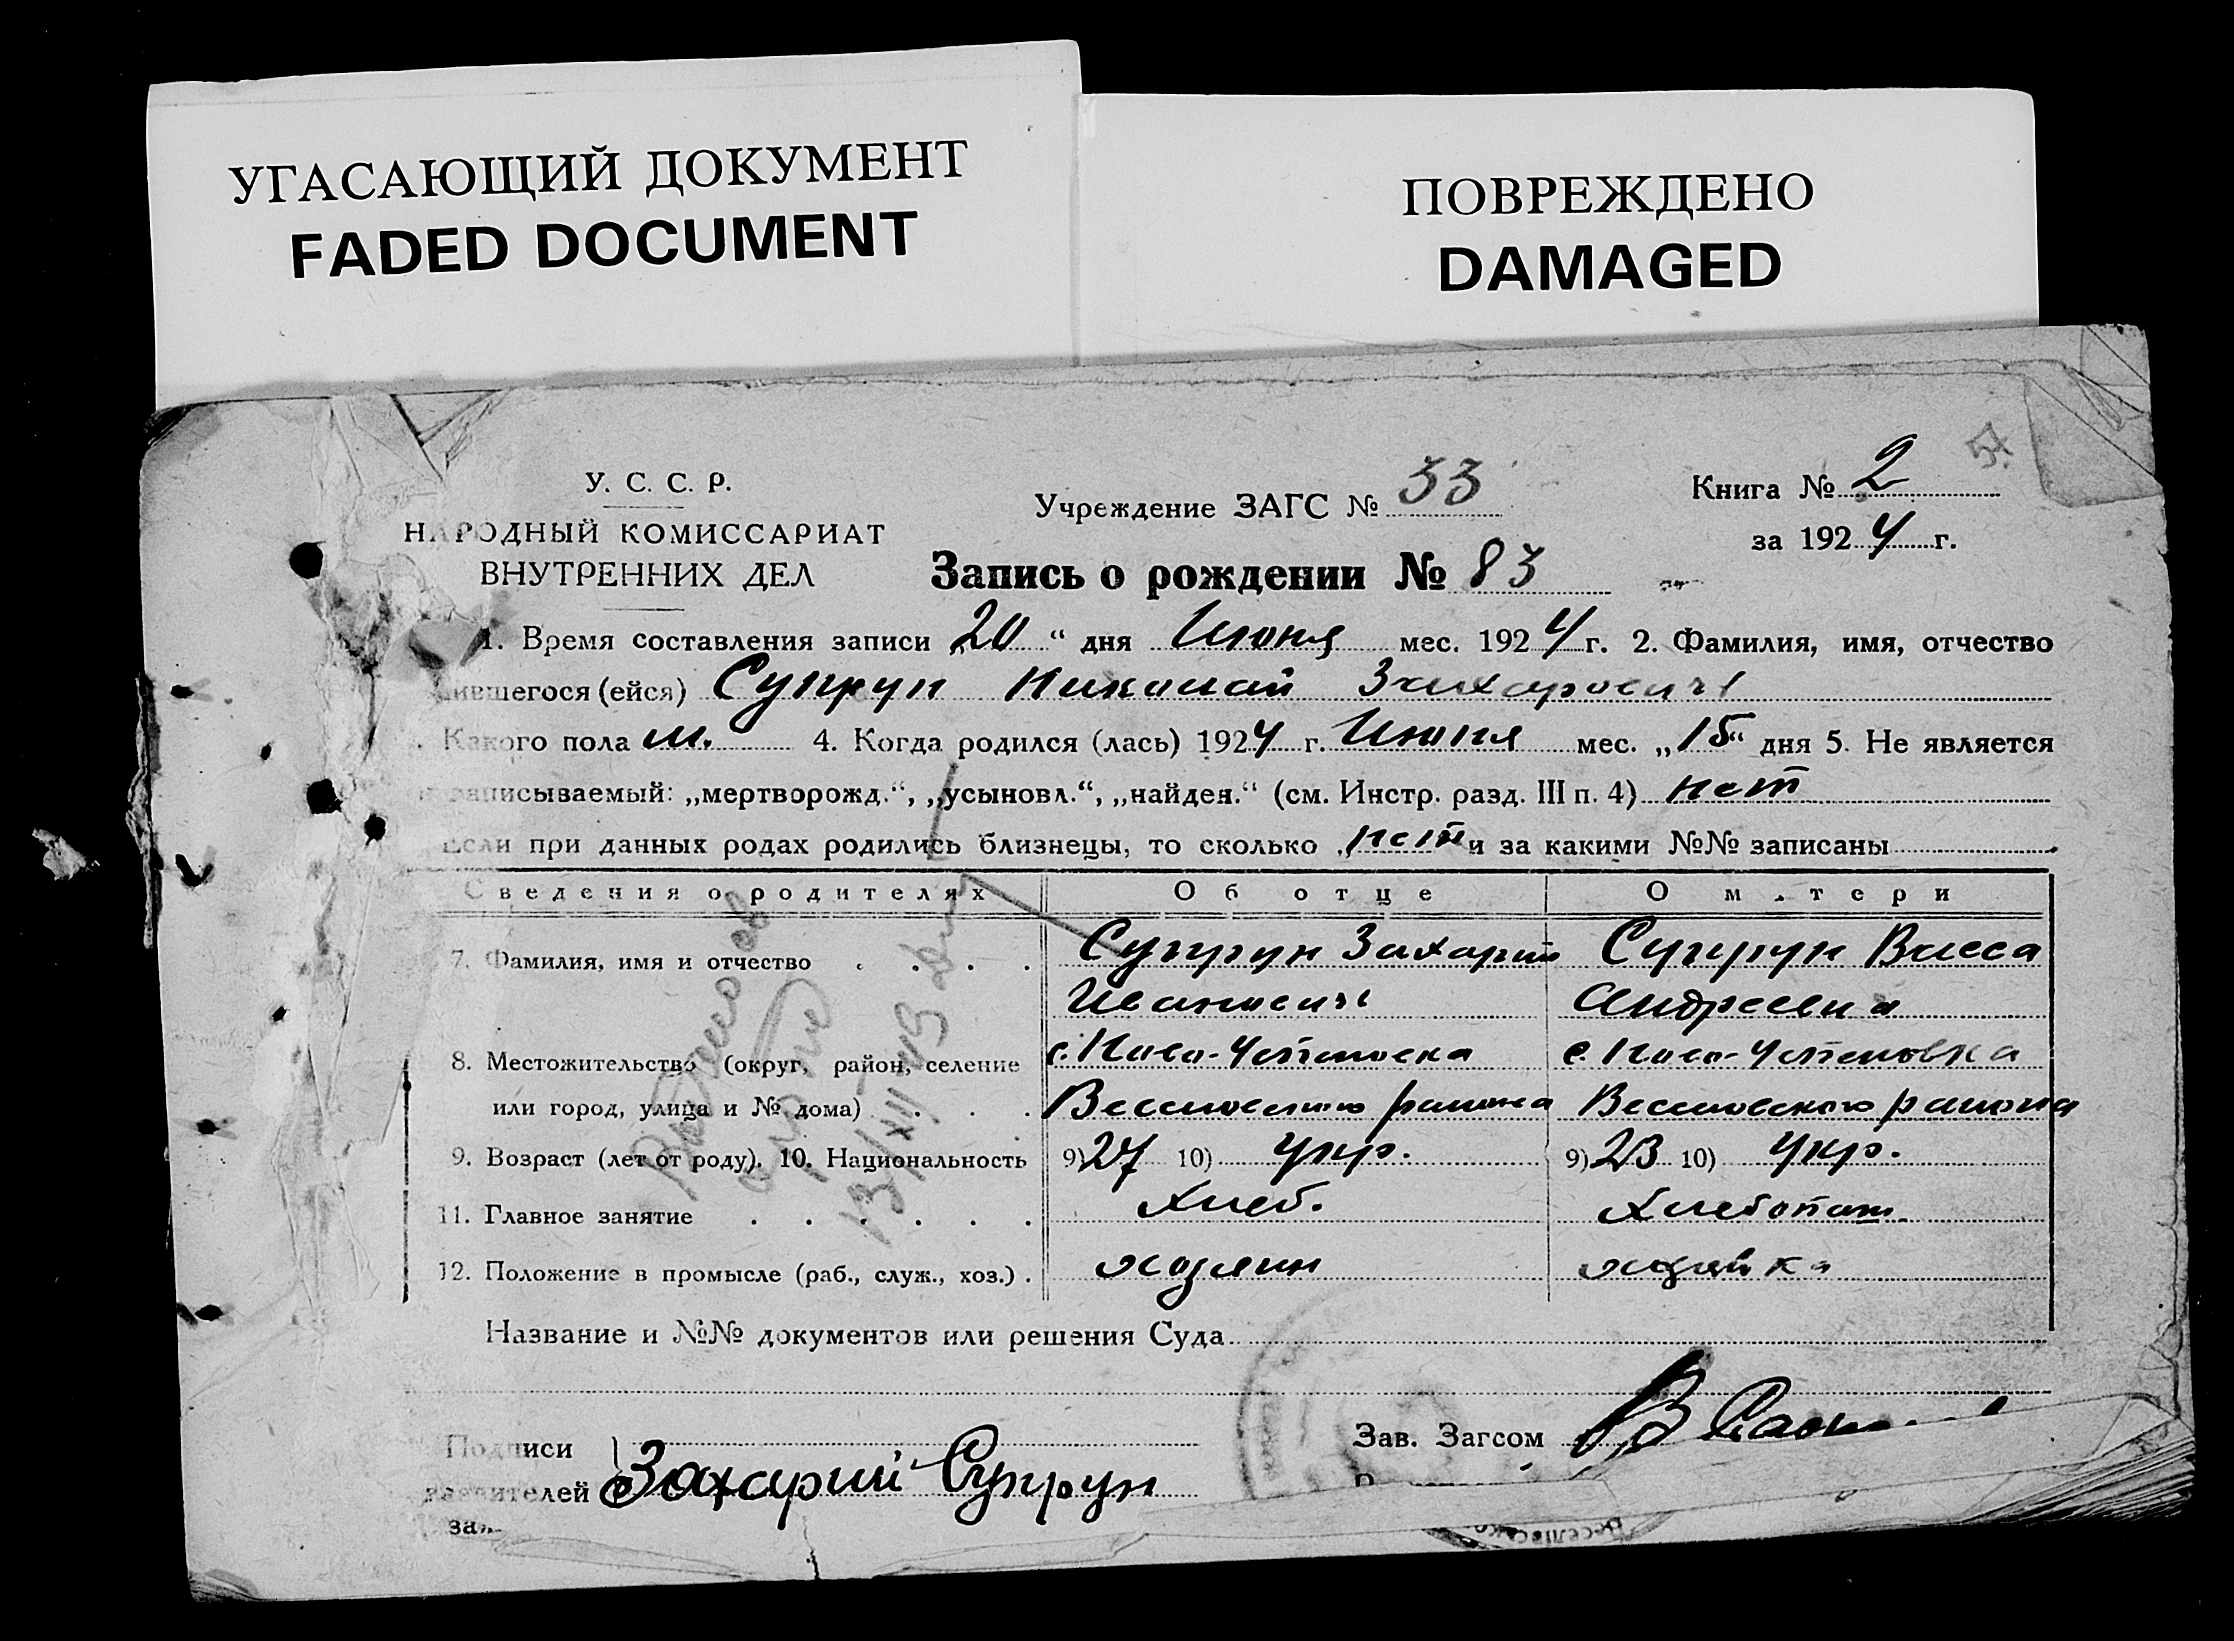 УГАСАЮЩИЙ ДОКУМЕНТ
FADED DOCUMENT
ПОВРЕЖДЕНО
DAMAGED
57
У. С. С. Р.
НАРОДНЫЙ КОМИССАРИАТ
ВНУТРЕННИХ ДЕЛ
Учреждение ЗАГС № 33
Книга № 2
за 1924 г.
Запись о рождении № 83
1. Время составления записи „20“ дня Июня мес. 1924 г. 2. Фамилия, имя, отчество
ившегося (ейся) Супрун Николай Захарович
Какого пола м. 4. Когда родился (лась) 1924 г. Июня мес. „15“ дня 5. Не является
записываемый: „мертворожд.“, „усыновл.“, „найден.“ (см. Инстр. разд. III п. 4) нет
Если при данных родах родились близнецы, то сколько нет и за какими №№ записаны
Сведения о родителях Об отце О м.тери
7. Фамилия, имя и отчество Супрун Захарий Супрун Васса
Иванович Андреевна
8. Местожительство (округ, район, селение с. Ново-Успеновка с. Ново-Успеновка
или город, улица и № дома) Веселовского района Веселовского района
9. Возраст (лет от роду). 10. Национальность 9) 27 10) укр. 9) 23 10) укр.
11. Главное занятие Хлеб. Хлебопаш.
12. Положение в промысле (раб., служ., хоз.) хозяин хозяйка
Название и №№ документов или решения Суда
Подписи
заявителей Захарий Супрун
Зав. Загсом